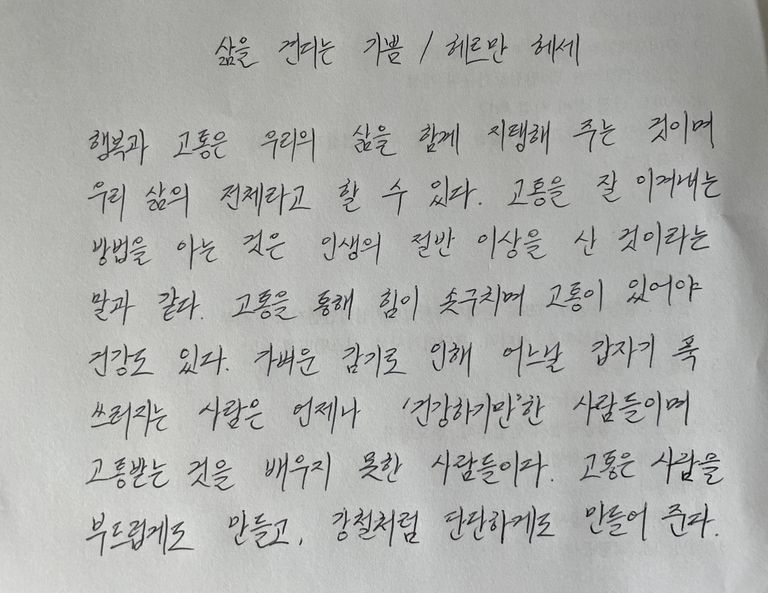 삶을 견디는 기쁨 / 헤르만 헤세
행복과 고통은 우리의 삶을 함께 지탱해 주는 것이며
우리 삶의 전체라고 할 수 있다. 고통을 잘 이겨내는
방법을 아는 것은 인생의 절반 이상을 산 것이라는
말과 같다. 고통을 통해 힘이 솟구치며 고통이 있어야
건강도 있다. 가벼운 감기로 인해 어느날 갑자기 푹
쓰러지는 사람은 언제나 '건강하기만'한 사람들이며
고통받는 것을 배우지 못한 사람들이다. 고통은 사람을
부드럽게도 만들고, 강철처럼 단단하게도 만들어 준다.